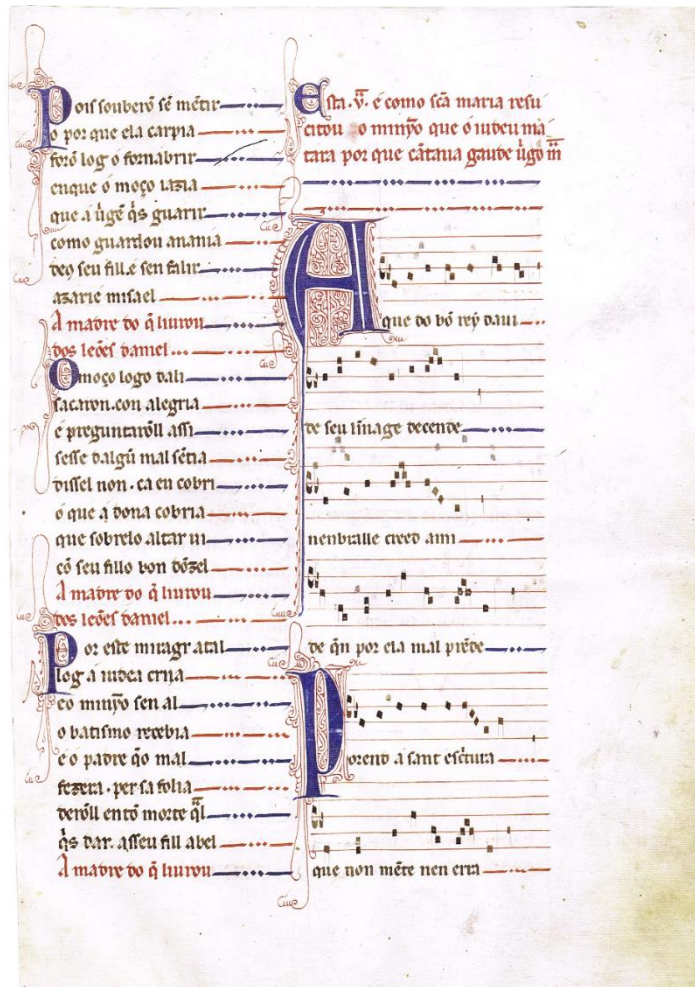 Pois souberõ sẽ mẽtir
o por que ela carpia
forõ log o fornabrir
en que o moço iazia
que a uĩgẽ q̃s guarir
como guardou anania
deos seu fill. e sen falir
azarie misael
A madre do q̃ liurou
dos leões daniel
O moço logo dali
sacaron. con alegria
e preguntarõll assi
sesse dalgũ mal sẽtia
dissel non. ca en cobri
o que a dona cobria
que sobrelo altar ui
cõ seu fillo bon dõzel
A madre do q̃ liurou
dos leões daniel
Por este miragr atal
log a iudea criya
eo minỹo sen al
o batismo recebia
e o padre q̃o mal
fezera. per sa folia
derõll entõ morte q̃l
q̃s dar. asseu fill abel
A madre do q̃ liurou
Esta. v̄. e como scã maria resu
citou o minỹo que o iudeu ma
tara por que cãtaua gaude uĩgo m̃
A que do bõ rey daui
de seu lĩnage decende
nenbralle creed ami
de qñ por ela mal prẽde
Porend a sant escritura
que non mẽte nen erra